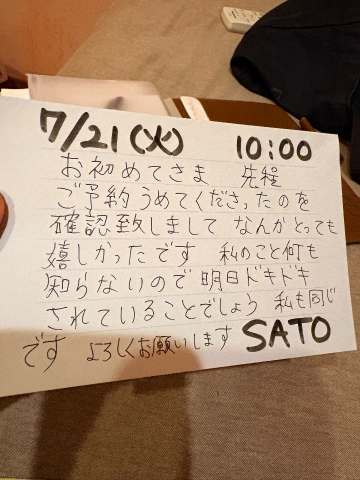 7/21(火) 10:00
お初めてさま 先程
ご予約うめてくださったのを
確認致しまして なんかとっても
嬉しかったです 私のこと何も
知らないので明日ドキドキ
されていることでしょう 私も同じ
です よろしくお願いします SATO